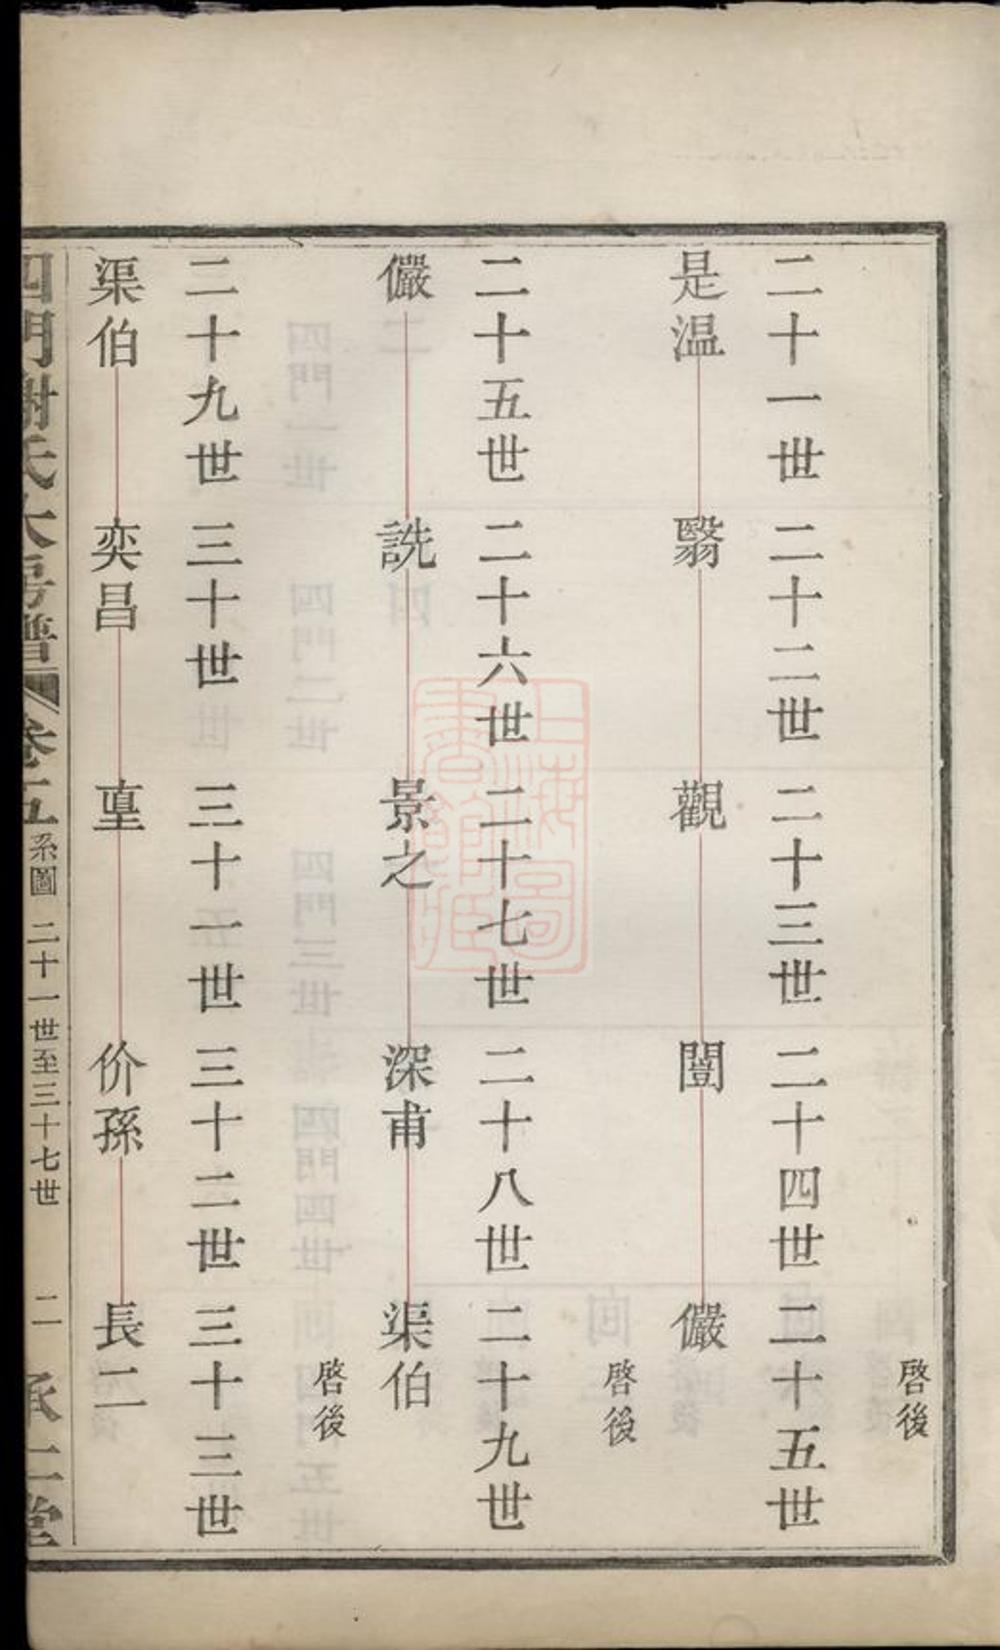 啓後
二十一世 二十二世 二十三世 二十四世 二十五世
是温 翳 觀 闓 儼
啓後
二十五世 二十六世 二十七世 二十八世 二十九世
儼 詵 景之 深甫 渠伯
啓後
二十九世 三十世 三十一世 三十二世 三十三世
渠伯 奕昌 㐭 价孫 長二
四門謝氏大房譜 卷十五 系圖 二十一世至三十七世 二 承仁堂
上海圖書館藏